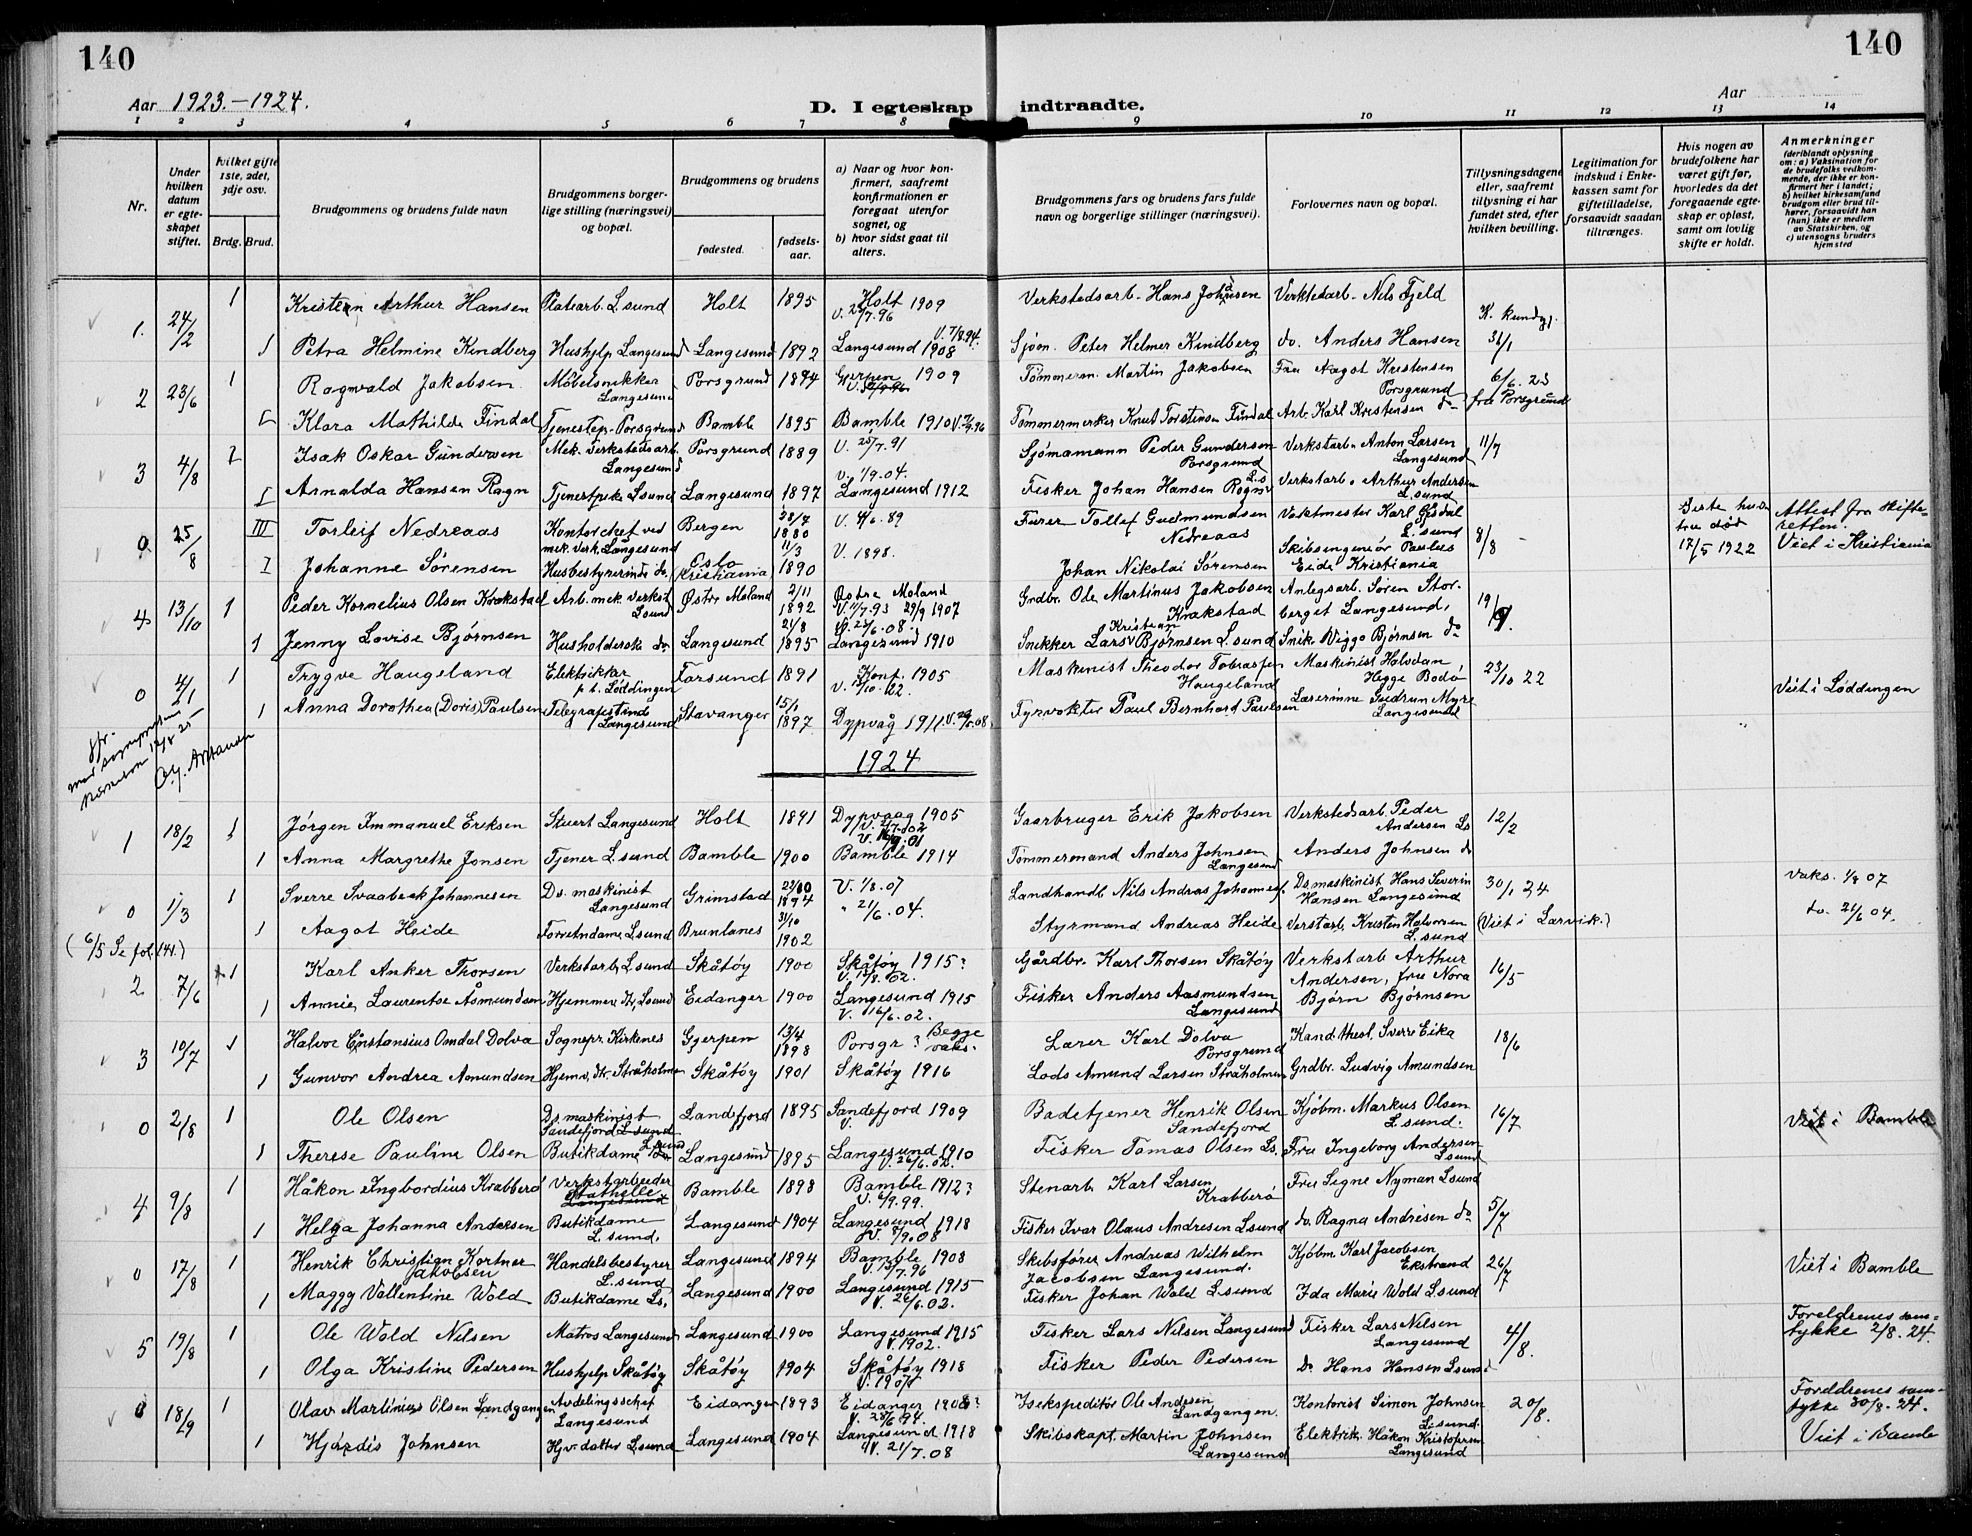 140
140
Aar 1923.-1924.
D. I egteskap indtraadte.
Aar
1 2 3 4 5 6 7 8 9 10 11 12 13 14
Nr.
Under hvilken datum er egteskapet stiftet.
hvilket gifte 1ste, 2det, 3dje osv.
Brdg. Brud.
Brudgommens og brudens fulde navn
Brudgommens borgerlige stilling (næringsvei) og bopæl.
Brudgommens og brudens
fødested.
fødselsaar.
a) Naar og hvor konfirmert, saafremt konfirmationen er foregaat utenfor sognet, og
b) hvor sidst gaat til alters.
Brudgommens fars og brudens fars fulde navn og borgerlige stillinger (næringsvei).
Forlovernes navn og bopæl.
Tillysningsdagene eller, saafremt tillysning ei har fundet sted, efter hvilken bevilling.
Legitimation for indskud i Enkekassen samt for giftetilladelse, forsaavidt saadan tiltrænges.
Hvis nogen av brudefolkene har været gift før, hvorledes da det foregaaende egteskap er opløst, samt om lovlig skifte er holdt.
Anmerkninger
(deriblandt oplysning om: a) Vaksination for de brudefolks vedkommende, der ikke er konfirmert her i landet; b) hvilket kirkesamfund brudgom eller brud tilhører, forsaavidt han (hun) ikke er medlem av Statskirken, og c) utensogns bruders hjemsted
1. 24/2 1 Kristern Arthur Hansen Platearb. L.sund Holt 1895 Holt 1909 Verkstedsarb. Hans Johnsen Verkstedarb. Nils Fjeld K. kundg.
1 Petra Helmine Kindberg Hushjelp Langesund Langesund 1892 Langesund 1908 Sjøm. Peter Helmer Kindberg do. Anders Hansen 31/1
2 23/6 1 Ragnvald Jakobsen Møbelsnikker Langesund Porsgrund 1894 Gjerpen 1909 Tømmerm. Martin Jakobsen Fru Aagot Kristensen Porsgrund 6/6. 23 fra Porsgrund
1 Klara Mathilde Findal Tjenestep. Porsgrund Bamble 1895 Bamble 1910 Tømmermerker Knut Torstensen Findal Arb. Karl Kristensen do
3 4/8 2 Isak Oskar Gundersen Mek. Verkstedsarb. Langesund Porsgrund 1889 V. 25/7. 91 Sjømamann Peder Gundersen Porsgrund Verkstarb. Anton Larsen Langesund 11/7
I Arnalda Hansen Ragn Tjenestpike L.sund Langesund 1897 V. 1/9. 04. Langesund 1912 Fisker Johan Hansen Rogn L.s Verkstarb. Arthur Andersen L.sund
0 25/8 III Torleif Nedreaas Kontorchef ved mek. verk. Langesund Bergen 28/7 1880 Furer Tollef Gudmundsen Nedreaas Vaktmester Karl L.sund 8/8 Siste hustru død 17/5 1922 Attest fra Skifteretten. Viet i Kristiania
I Johanne Sørensen Husbestyrerinde do. Oslo (Kristiania) 11/3 1890 V. 1898. Johan Nikolai Sørensen Skibsingeniør Paulus Eide Kristiania
4 13/10 1 Peder Kornelius Olsen Krakstad Arb. mek. verkst L.sund Østre Moland 2/11 1892 Østre Moland V. 11/7.93 29/9 1907 Grdbr. Ole Martinus Jakobsen Krakstad Anlegsarb. Søren Storberget Langesund, 19/9.
1 Jenny Lovise Bjørnsen Husholderske do Langesund 21/8 1895 V. 23/6. 08. Langesund 1910 Snikker Lars Kristian Bjørnsen L.sund Snik. Viggo Bjørnsen do
0 4/1 1 Trygve Haugeland Elektriker p.t. Løddingen Farsund 1891 Konf. 1905 Maskinist Theodor Tobiassen Haugeland Maskinist Halvdan Hegge Bodø 23/10 22 Viet i Løddingen
1 Anna Dorothea (Doris) Paulsen Telegrafistind Langesund Stavanger 15/1 1897 Dypvåg 1911. Fyrvokter Paul Bernhard Paulsen Lærerinne Gudrun Myre Langesund
1924
1 18/2 1 Jørgen Immanuel Eriksen Stuert Langesund Holt 1891 Dypvaag 1905 Gaarbruger Erik Jakobsen Verkstedsarb. Peder Andersen Ls 12/2
1 Anna Margrethe Jonsen Tjener L.sund Bamble 1900 Bamble 1914 Tømmermand Anders Johnsen Langesund Anders Johnsen do
0 1/3 1 Sverre Svaabeck Johannesen Ds. maskinist Langesund Grimstad 1894 V. 1/8. 07 Landhandl. Nils Andreas Johannesen Ds. maskinist Hans Severin Hansen Langesund 30/1 24 Vaks. 1/8 07
1 Aagot Heide Forretndame L.sund Brunlanes 31/10 1902 " 21/6. 04. Styrmand Andreas Heide Verstarb. Kristen Halvorsen L.sund (Viet i Larvik.) do. 21/6 04.
(6/5 Se fol. 141.)
2 7/6 1 Karl Anker Thorsen Verkstarb. L.sund Skåtøy 1900 Skåtøy 1915? Gårdbr. Karl Thorsen Skåtøy Verkstarb Arthur Andersen, fru Nora 16/5
1 Annie Laurentse Åsmundsen Hjemmev. str. L.sund Eidanger 1900 Langesund 1915 V. 16/6. 02. Fisker Anders Aasmundsen Langesund Bjørn Bjørnsen
3 10/7 1 Halvor Constansius Omdal Dolva Sognepr. Kirkenes Gjerpen 13/4 1898 Porsgr? Begge vaks. Lærer Karl Dolva Porsgrund Kand. theol. Sverre Eika 18/6
1 Gunvor Andrea Amundsen Hjemv. str. Stråholmen Skåtøy 1901 Skåtøy 1916 Lods Amund Larsen Stråholmen Grdbr. Ludvig Amundsen
0 2/8 1 Ole Olsen Ds maskinist Sandefjord L.sund Sandefjord 1895 Sandefjord 1909 V. Badetjener Henrik Olsen Sandefjord Kjøbm. Markus Olsen L.sund. 16/7 Viet i Bamble
1 Therese Pauline Olsen Butikdame L.sund Langesund 1895 Langesund 1910 V. 26/6. 02. Fisker Tomas Olsen Ls. Fru Ingeborg Andersen L.sund
4 9/8 1 Håkon Ingbordius Krabberø Verkstarbeider Stathelle Langesund Bamble 1898 Bamble 1912? V. 6/9. 99. Stenarb. Karl Larsen Krabberø Fru Signe Nyman L.sund 5/7
1 Helga Johanna Andersen Butikdame L.sund. Langesund 1904 Langesund 1918 Fisker Ivar Olaus Andresen L.sund do. Ragna Andrésen do
0 17/8 1 Henrik Christian Kortner Jacobsen Handelsbestyrer L.sund Langesund 1894 Bamble 1908 V. 15/7. 96 Skibsfører Andreas Wilhelm Jacobsen Langesund. Kjøbm. Karl Jacobsen Ekstrand 26/7 Viet i Bamble
1 Maggy Vallentine Wold Butikdame Ls. Langesund 1900 Langesund 1915 V. 26/6. 02. Fisker Johan Wold L.sund Ida Marie Wold L.sund
5 19/8 1 Ole Wold Nilsen Matros Langesund Langesund 1900 Langesund 1915 V. 1902. Fisker Lars Nilsen Langesund Fisker Lars Nilsen Langesund 4/8. Foreldrenes samtykke 2/8. 24.
1 Olga Kristine Pedersen Hushjelp Skåtøy Skåtøy 1904 Skåtøy 1918 V. 1907 Fisker Peder Pedersen do Hans Hansen L.sund
0 18/9 1 Olav Martinius Olsen Landgangen Avdelingschef Langesund Eidanger 1893 Eidanger 1908? Isekspeditør Ole Andersen Landgangen. Kontorist Simon Johnsen L.sund. 20/8. Foreldrenes samtykke 30/8. 24. Viet i Bamle
1 Hjørdis Johnsen Hjv. datter L.sund Langesund 1904 Langesund 1918 V. 21/7. 08 Skibskapt. Martin Johnsen Langesund Elektrik. Håkon Kristofersen Langesund